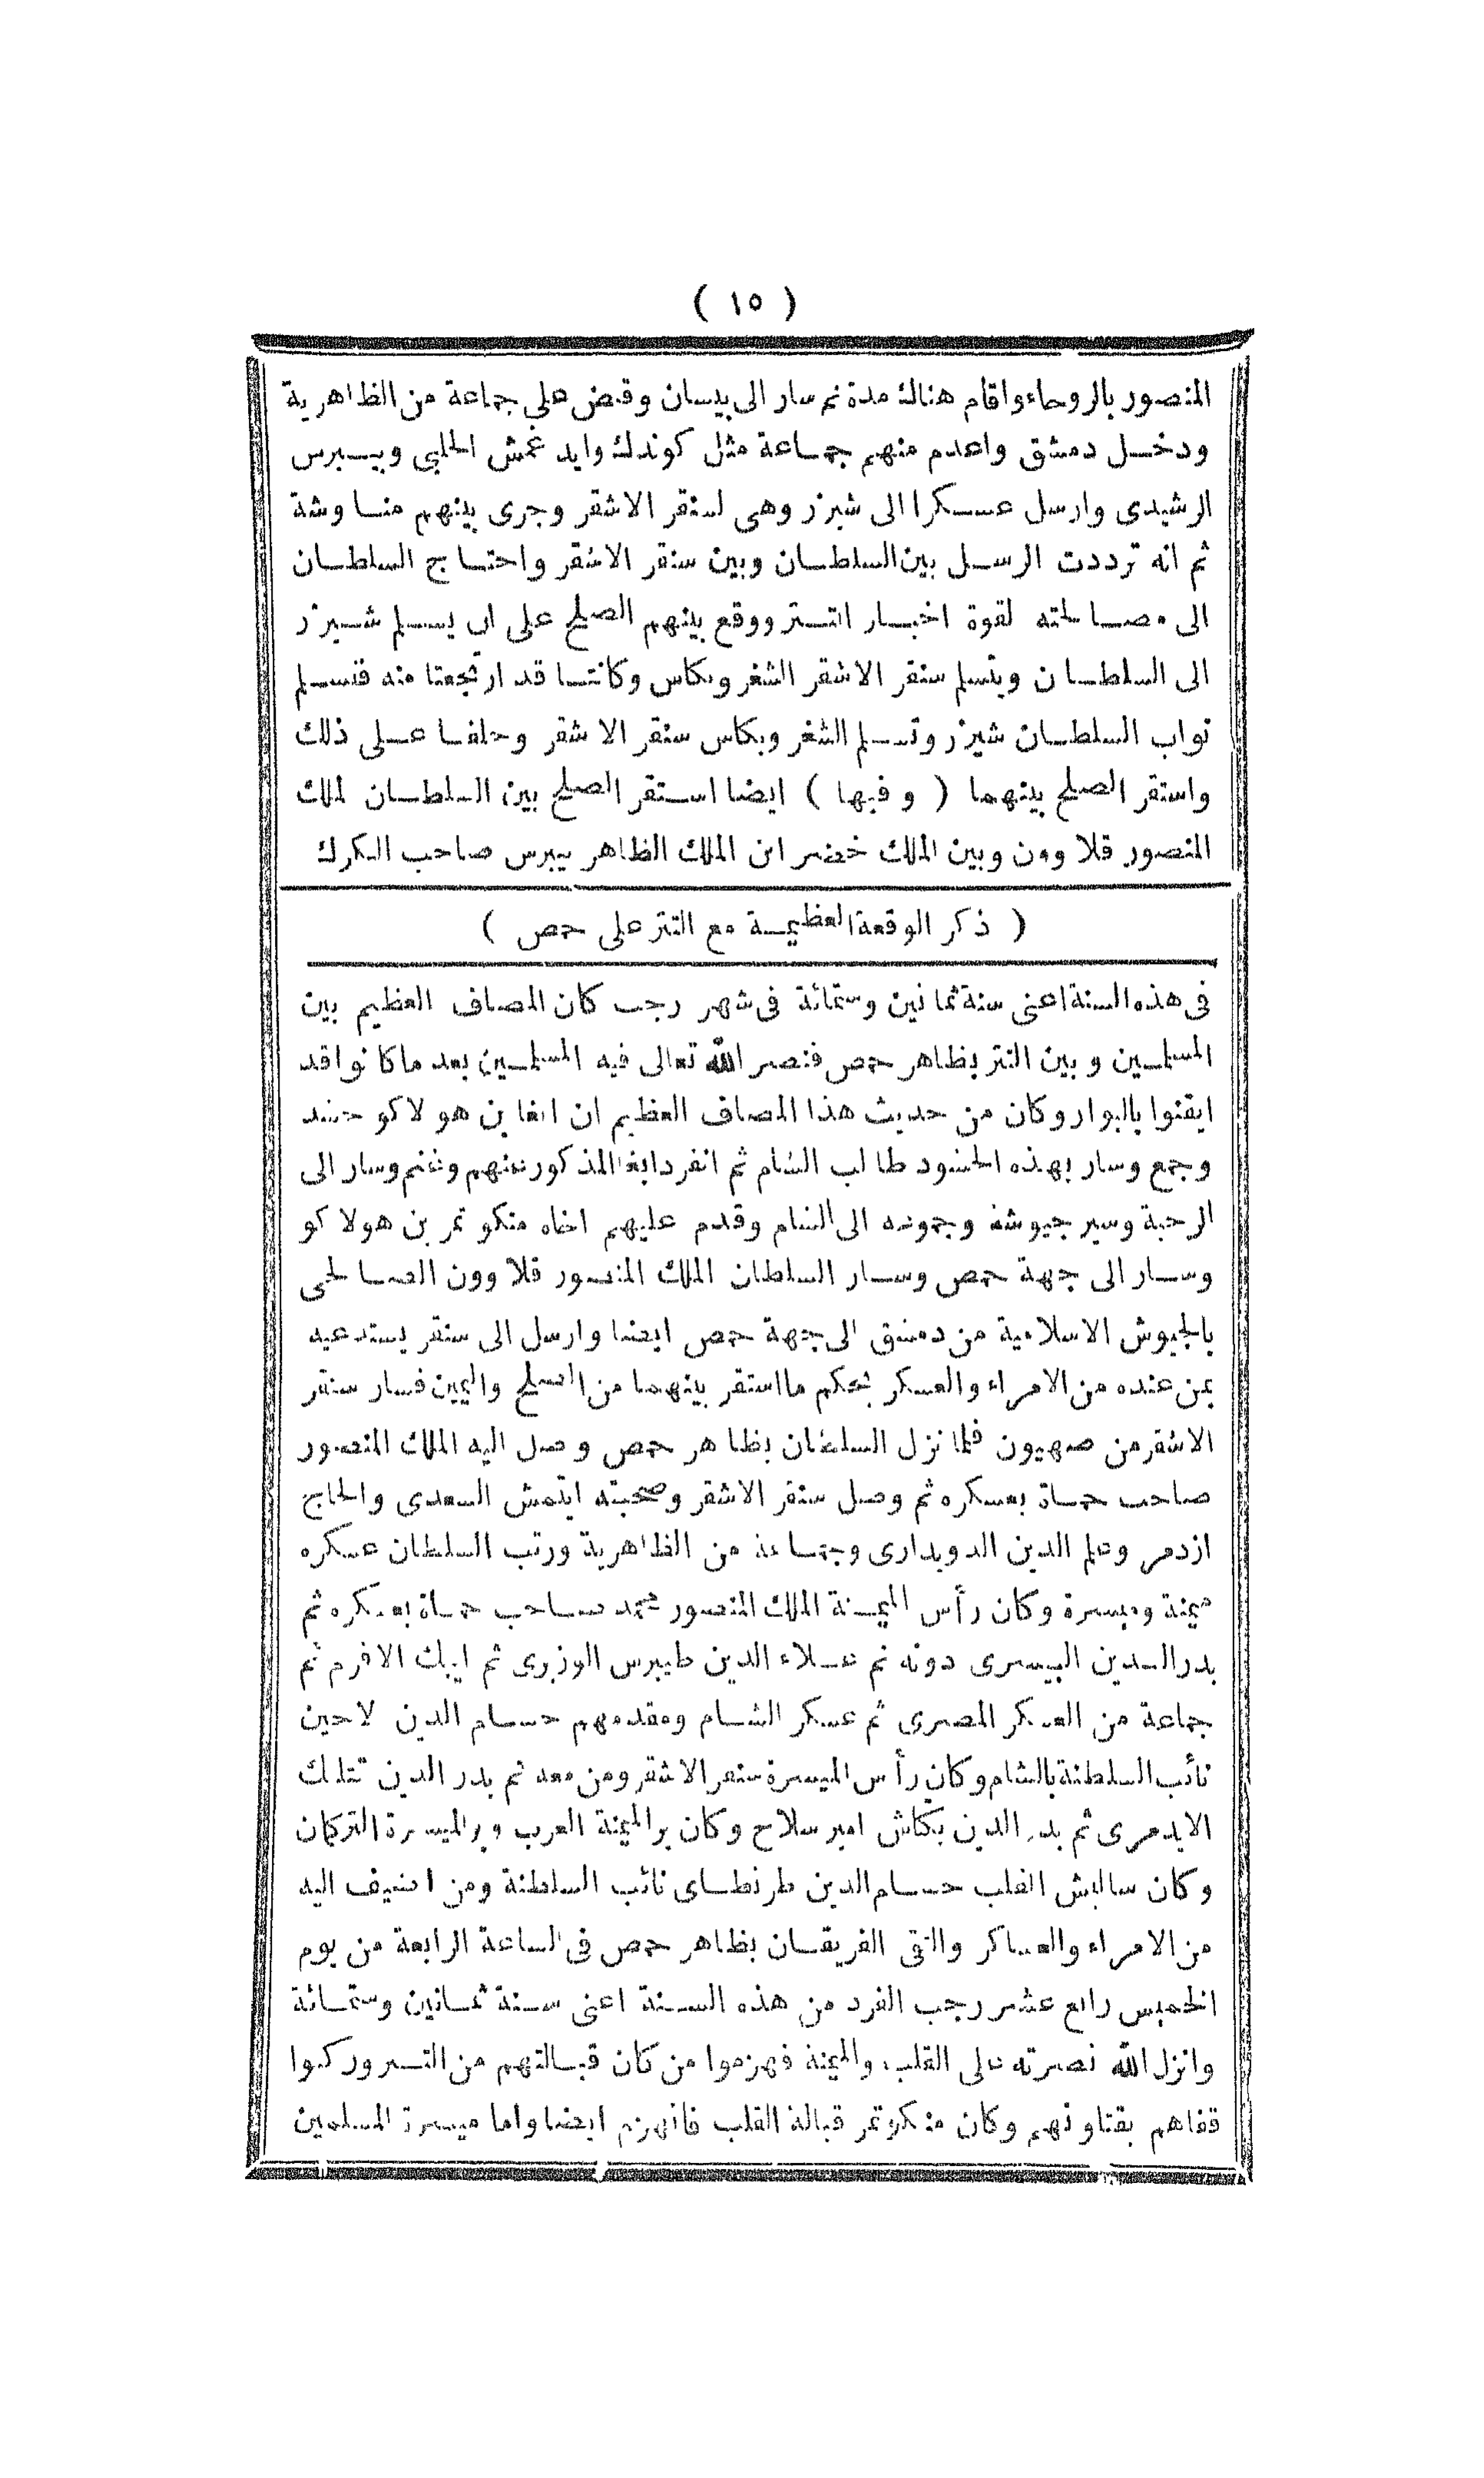 ( ١٥ )
المنصور بالروحاء واقام هناك مدة ثم سار الى بيسان وقبض على جماعة من الظاهرية
ودخل دمشق واعدم منهم جماعة مثل كوندك وايد غمش الحلبي وبيبرس
الرشيدى وارسل عسكرا الى شيزر وهى لسنقر الاشقر وجرى بينهم مناوشة
ثم انه ترددت الرسل بين السلطان وبين سنقر الاشقر واحتاج السلطان
الى مصالحته لقوة اخبار التتر ووقع بينهم الصلح على ان يسلم شيزر
الى السلطان ويتسلم سنقر الاشقر الشغر وبكاس وكانتا قد ارتجعتا منه فتسلم
نواب السلطان شيزر وتسلم الشغر وبكاس سنقر الاشقر وحلفا على ذلك
واستقر الصلح بينهما ( وفيها ) ايضا استقر الصلح بين السلطان لملك
المنصور قلاوون وبين الملك خضر ابن الملك الظاهر بيبرس صاحب الكرك
( ذكر الوقعة العظيمة مع التتر على حمص )
فى هذه السنة اعنى سنة ثمانين وستمائة فى شهر رجب كان المصاف العظيم بين
المسلمين وبين التتر بظاهر حمص فنصر الله تعالى فيه المسلمين بعد ما كانوا قد
ايقنوا بالبوار وكان من حديث هذا المصاف العظيم ان ابغا بن هولاكو حشد
وجمع وسار بهذه الحشود طالب الشام ثم انفرد ابغا المذكور عنهم وغنم وسار الى
الرحبة وسير جيوشه وجموعه الى الشام وقدم عليهم اخاه منكوتمر بن هولاكو
وسار الى جهة حمص وسار السلطان الملك المنصور قلاوون الصالحى
بالجيوش الاسلامية من دمشق الى جهة حمص ايضا وارسل الى سنقر يستدعيه
بمن عنده من الامراء والعسكر بحكم ما استقر بينهما من الصلح واليمين فسار سنقر
الاشقر من صهيون فلما نزل السلطان بظاهر حمص وصل اليه الملك المنصور
صاحب حماة بعسكره ثم وصل سنقر الاشقر وصحبته ايتمش السعدى والحاج
ازدمر وعلم الدين الدويدارى وجماعة من الظاهرية ورتب السلطان عسكره
ميمنة وميسرة وكان رأس الميمنة الملك المنصور محمد صاحب حماة بعسكره ثم
بدر الدين البيسرى دونه ثم علاء الدين طيبرس الوزيرى ثم ايبك الافرم ثم
جماعة من العسكر المصرى ثم عسكر الشام ومقدمهم حسام الدين لاجين
نائب السلطنة بالشام وكان رأس الميسرة سنقر الاشقر ومن معه ثم بدر الدين تتلك
الايدمرى ثم بدر الدين بكتاش امير سلاح وكان برالميمنة العرب وبرالميسرة التركمان
وكان ساليش القلب حسام الدين طرنطاى نائب السلطنة ومن اضيف اليه
من الامراء والعساكر والتقى الفريقان بظاهر حمص فى الساعة الرابعة من يوم
الخميس رابع عشر رجب الفرد من هذه السنة اعنى سنة ثمانين وستمائة
وانزل الله نصرته على القلب والميمنة فهزموا من كان قبالتهم من التتر وركبوا
قفاهم يقتلونهم وكان منكوتمر قبالة القلب فانهزم ايضا واما ميسرة المسلمين